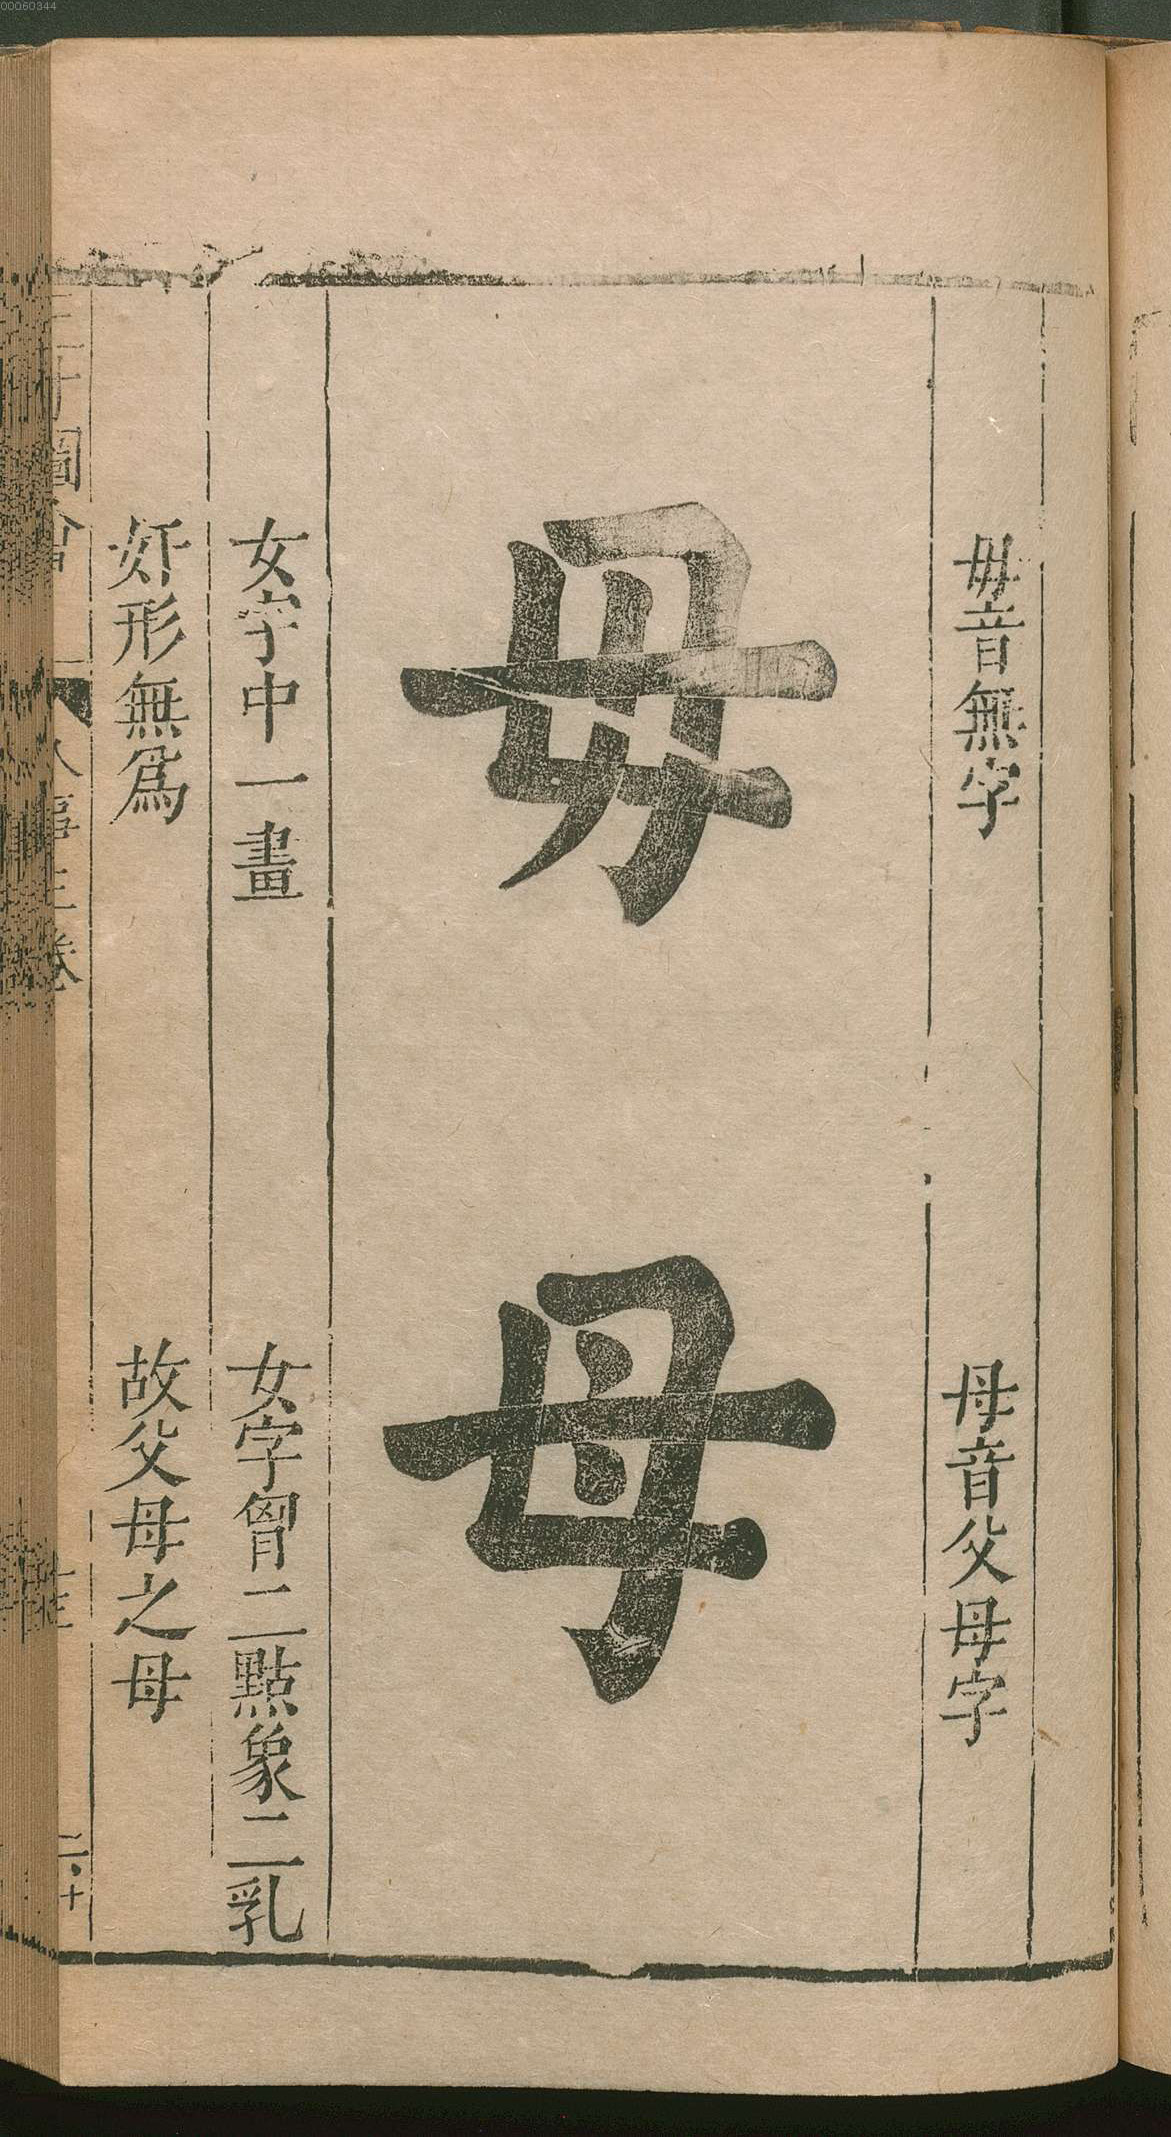 00060344
毋音無字
母音父母字
毋
母
女字中一畫
女字胷二點象二乳
奸形無爲
故父母之母
圖會
人事三卷
二十